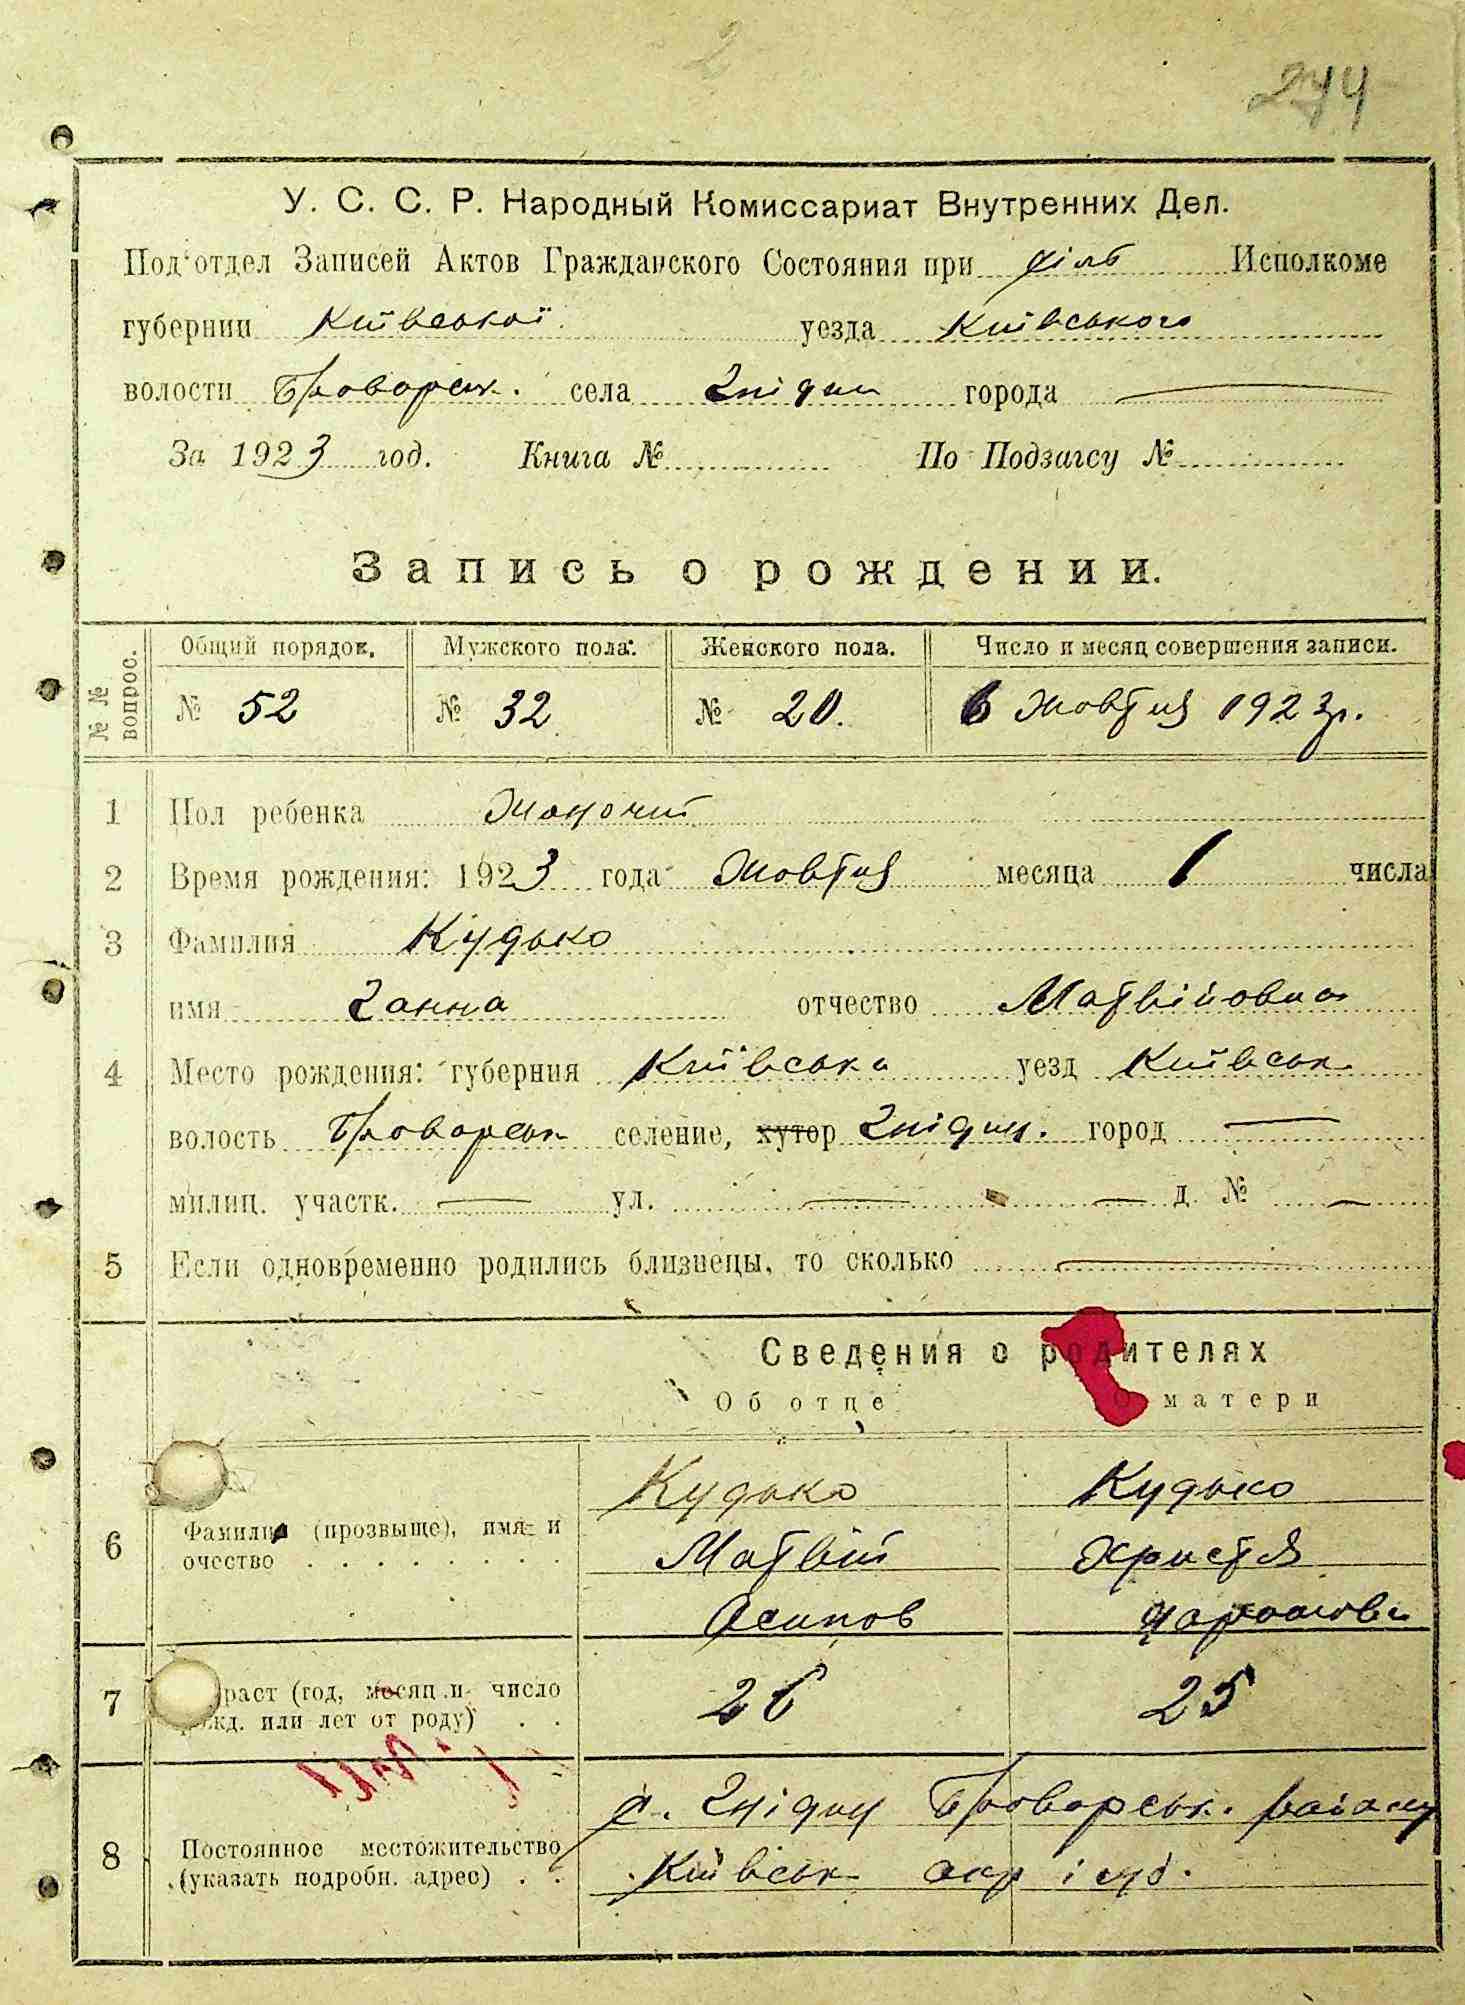 244
У. С. С. Р. Народный Комиссариат Внутренних Дел.
Под'отдел Записей Актов Гражданского Состояния при сільс Исполкоме
губернии Київської уезда Київського
волости Броварськ. села Гнідин города
За 1923 год. Книга № По Подзагсу №
Запись о рождении.
№ № вопрос.
Общий порядок. Мужского пола. Женского пола. Число и месяц совершения записи.
№ 52 № 32 № 20. 6 Жовтня 1923р.
1 Пол ребенка Жоночий
2 Время рождения: 1923 года Жовтня месяца 1 числа
3 Фамилия Кудько
имя Ганна отчество Матвійовна
4 Место рождения: губерния Київська уезд Київськ
волость Броварськ селение, хутор Гнідин. город
милиц. участк. ул. д. №
5 Если одновременно родились близнецы, то сколько
Сведения о родителях
Об отце О матери
Кудько Кудько
6 Фамилия (прозвыще), имя и
очество
Матвій Христя
Осипов
7 раст (год, месяц и число
рожд. или лет от роду)
26 25
8 Постоянное местожительство
(указать подробн. адрес)
с. Гнідин Броварськ. району
Київськ окр і губ.